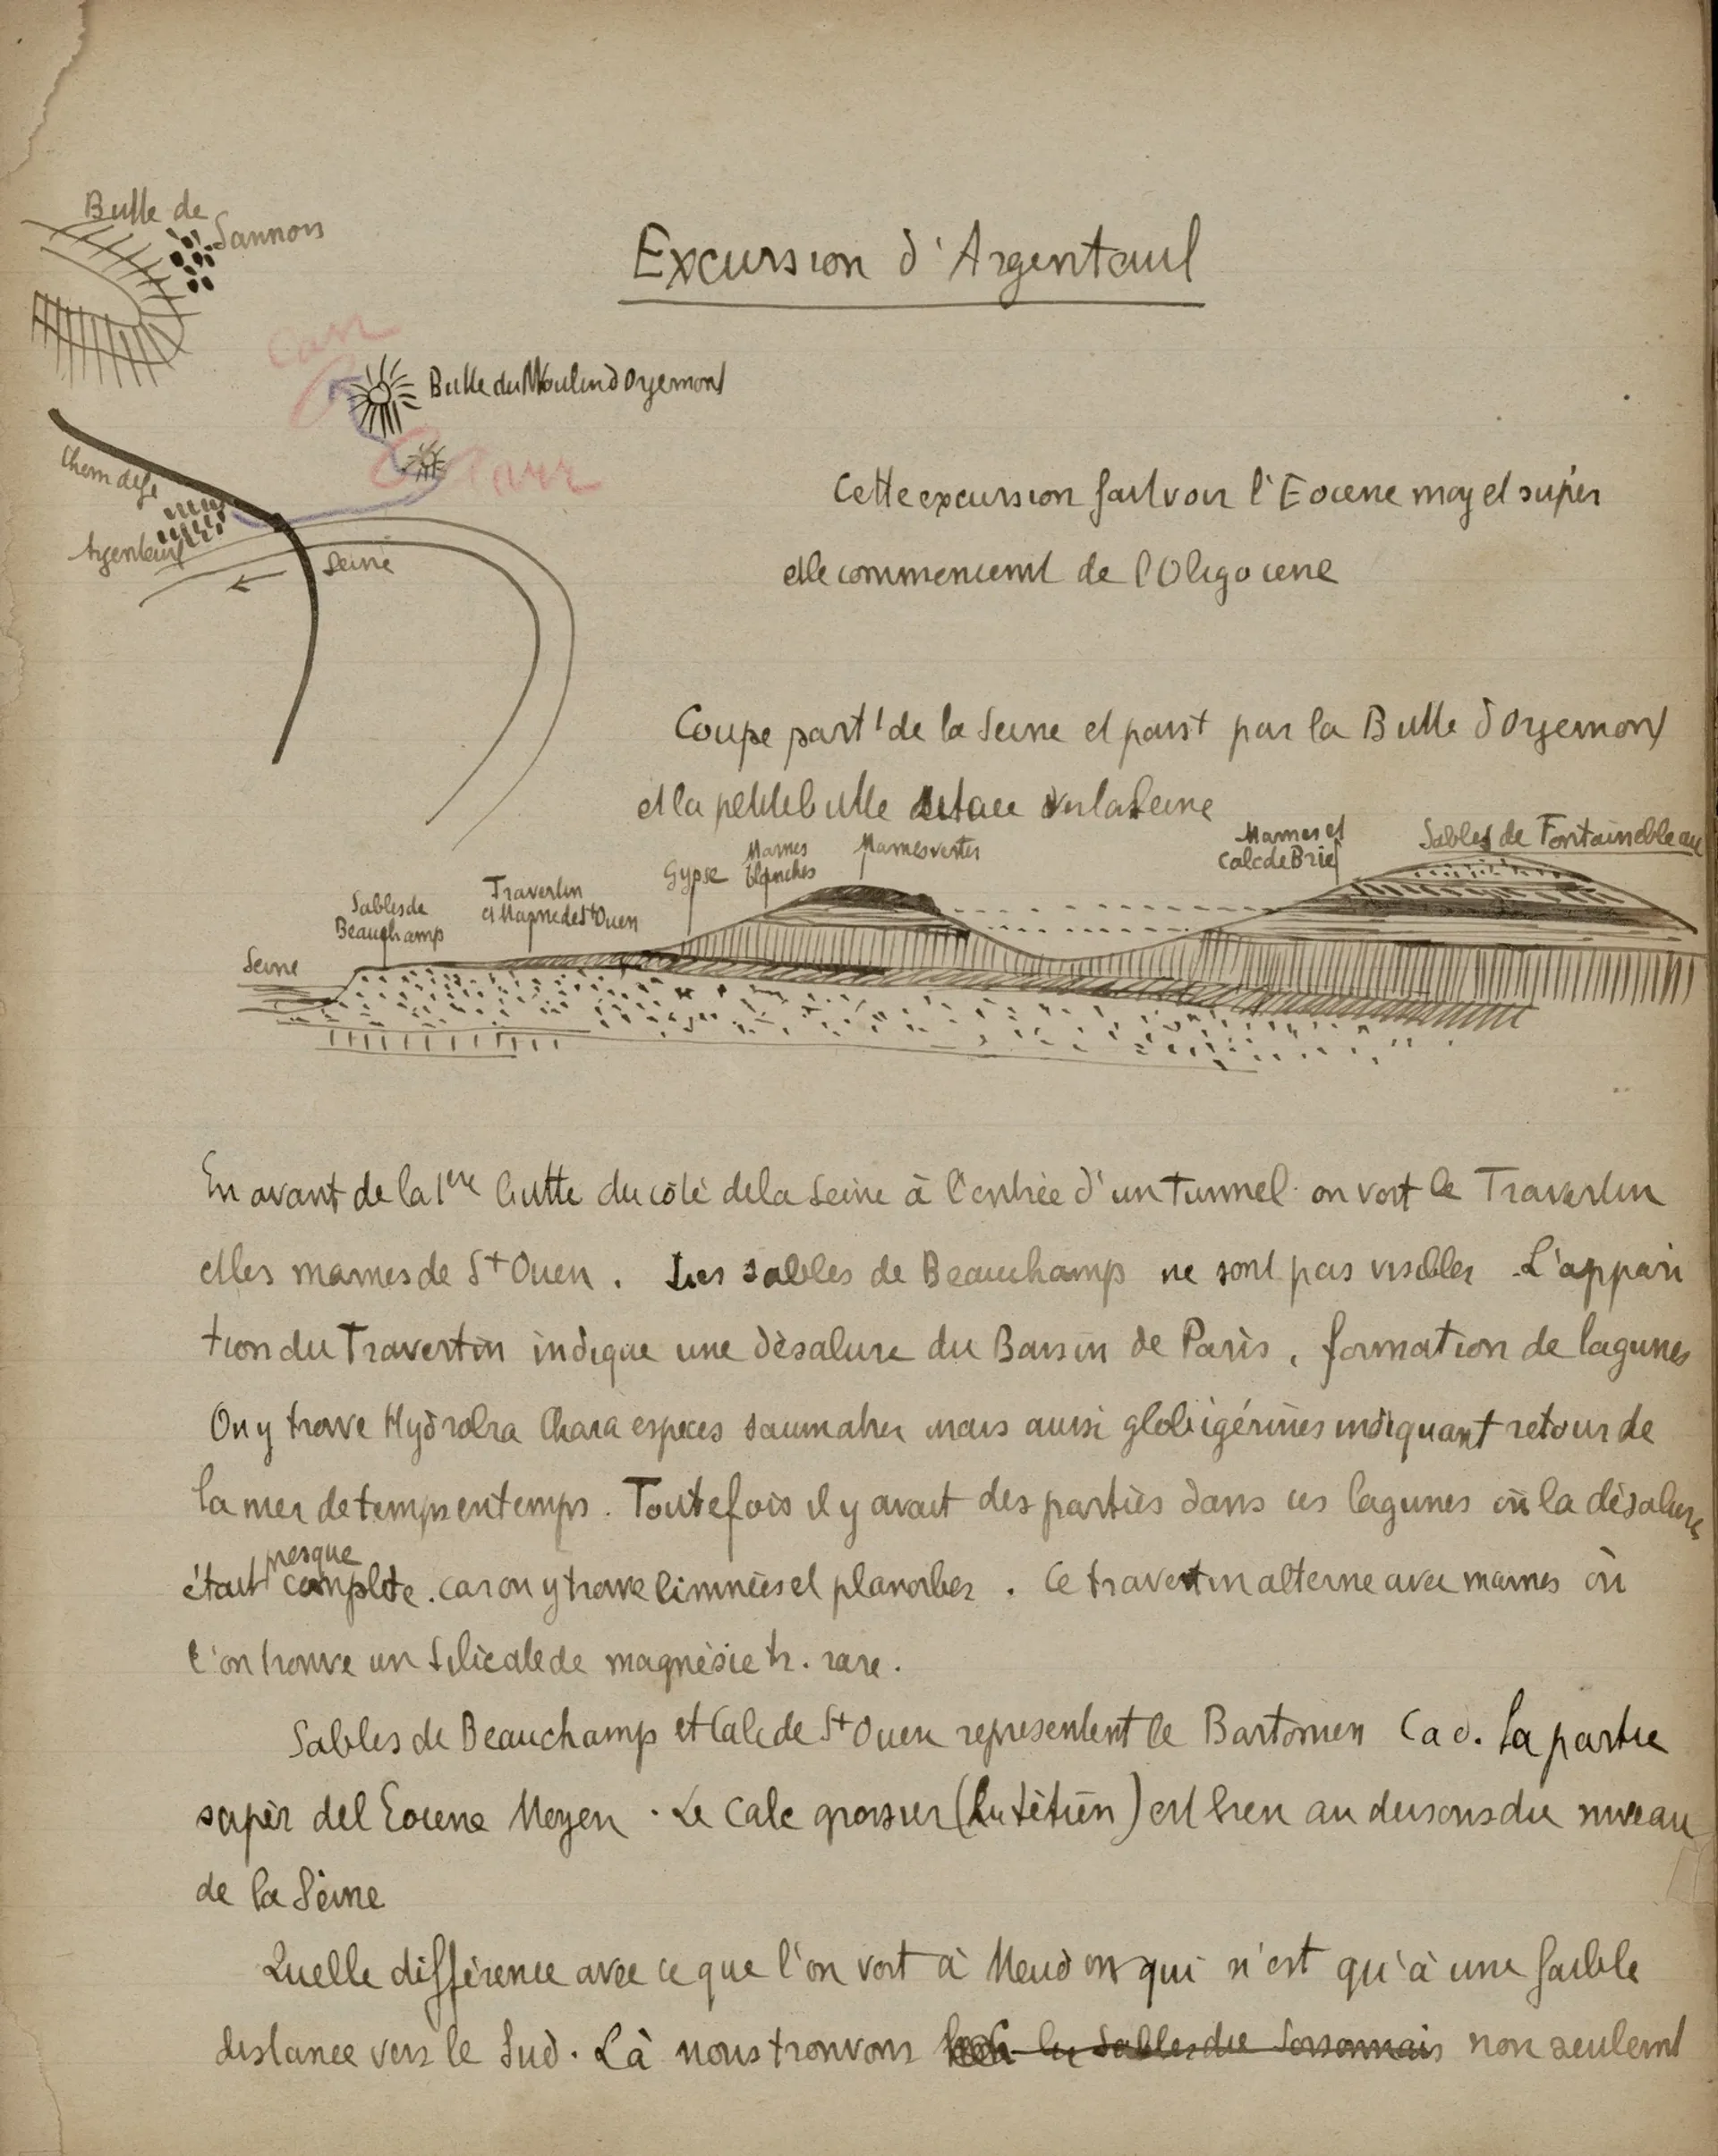 Butte de
Sannois
Excursion d'Argenteuil
Carr
Butte du Moulin d Orgemont
Carr
Chem de fe
Argenteuil
Seine
Cette excursion fait voir l'Eocene moy et supér
et le commencemt de l'Oligocene
Coupe partt de la Seine et passt par la Butte d Orgemont
et la petite butte située vers la Seine
Marnes et
Calc de Brie
Sables de Fontainebleau
Marnes
blanches
Marnes vertes
Gypse
Travertin
et Marne de St Ouen
Sables de
Beauchamp
Seine
En avant de la 1ere butte du côté de la Seine à l'entrée d'un tunnel on voit le Travertin
et les marnes de St Ouen. Les sables de Beauchamp ne sont pas visibles. L'appari
tion du Travertin indique une désalure du Bassin de Paris, formation de lagunes
On y trouve Hydrobia Chara espèces saumatres mais aussi globigérines indiquant retour de
la mer de temps en temps. Toutefois il y avait des parties dans ces lagunes où la désalure
presque
était complète. car on y trouve limnées et planorbes. Ce travertin alterne avec marnes où
l'on trouve un silicate de magnésie tr. rare.
Sables de Beauchamp et Calc de St Ouen representent le Bartonien C a d. la partie
supér del Eocene Moyen. Le Calc grossier (Lutétien) est bien au dessous du niveau
de la Seine
Quelle différence avec ce que l'on voit à Meudon qui n'est qu'à une faible
distance vers le Sud. Là nous trouvons les Sables du Soissonnais non seulemt